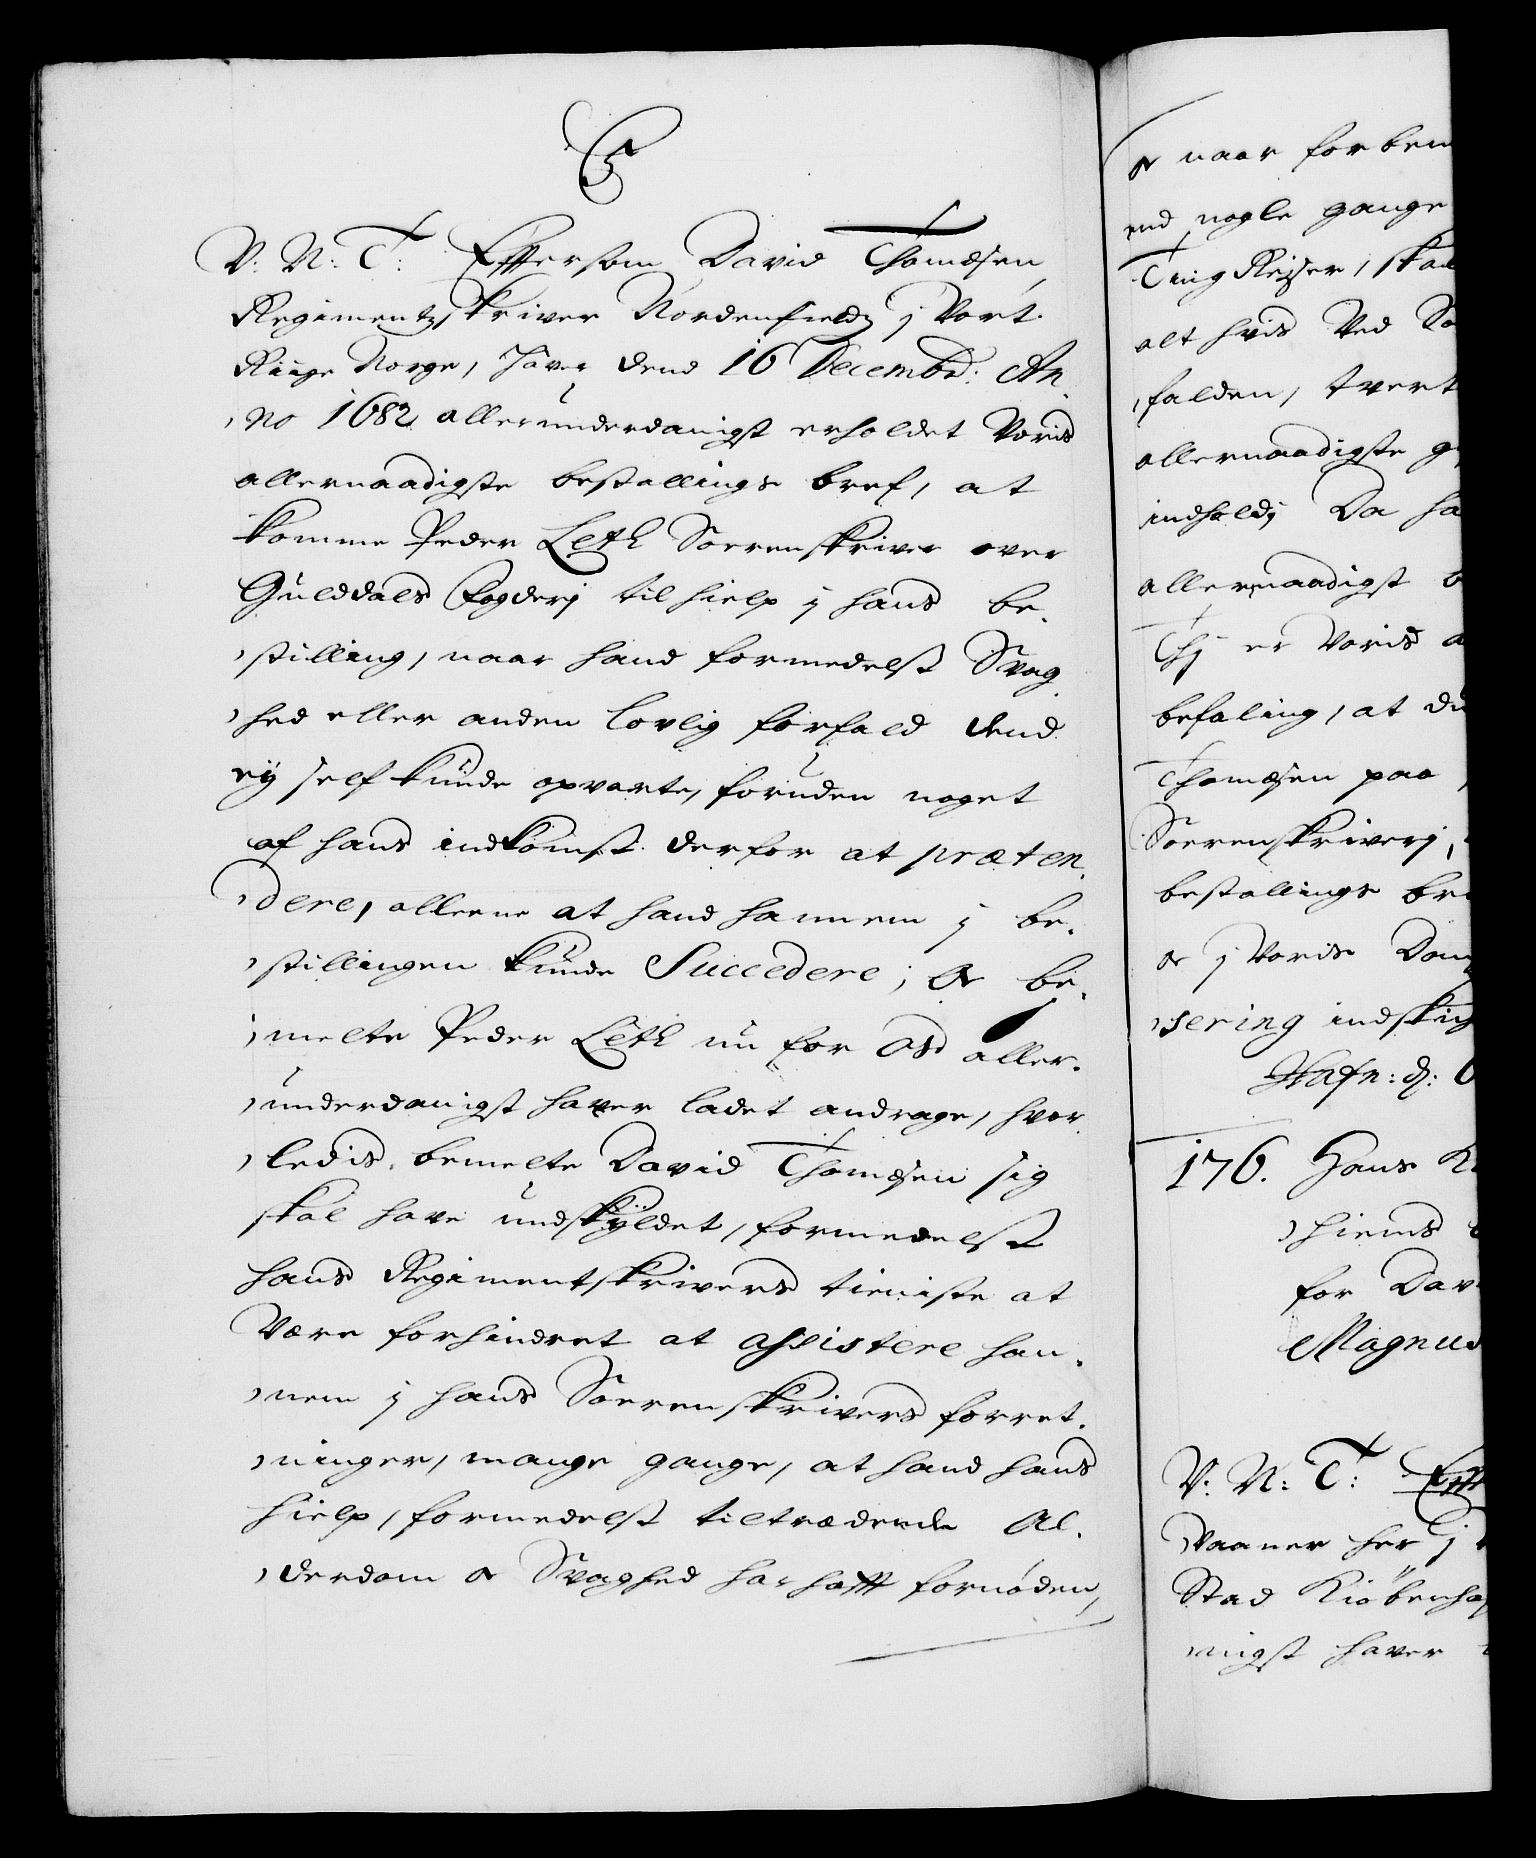 C5
V: N: T: Effersom David Thomæsen
Regimentzskriver Nordenfieldz j Vort
Riige Norge, Haver dend 16 Decembr: An,
no 1682 allerunderdanigst erholdet Voris
allernaadigste bestallings bref, at
komme Peder Leth Sorenskriver over
Gulddals Fogderj til hielp j hans be,
stilling, naar hand formedelst Svag,
hed eller anden lovlig forfald dend
eij self kunde opvarte, foruden noget
af hans indkomst derfor at præten,
dere, alleene at hand hannem j be,
stillingen kunde Succedere; Og be,
melte Peder Leth nu for Os aller,
underdanigst haver ladet andrage, hvor,
ledis bemelte David Thomæsen sig
skal have undskyldet, formedelst
hans Regimentskrivers tieniste at
Være forhindret at assistere han,
nem j hans Sorenskrivers forret,
ninger, mange gange, at hand hans
hielp, formedelst tiltrædende Al,
derdom og Svaghed har hafft fornøden,
og naar forben
end nogle gange
Ting Reiser, skal
alt hvis Ved So
falden, tvert
allernaadigste
indhold; Da ha
allernaadigst b
Thj er Voris a
befaling, at du
Thomæsen paa
Sorenskriverj,
bestallings bre
og j Voris Dan
sering indskic
Hafn: d:
176. Hans K
hiems
for Dav
Magnus
V: N: T: Eff
Vaaner her j
Stad Kiøbenha
nigst haver